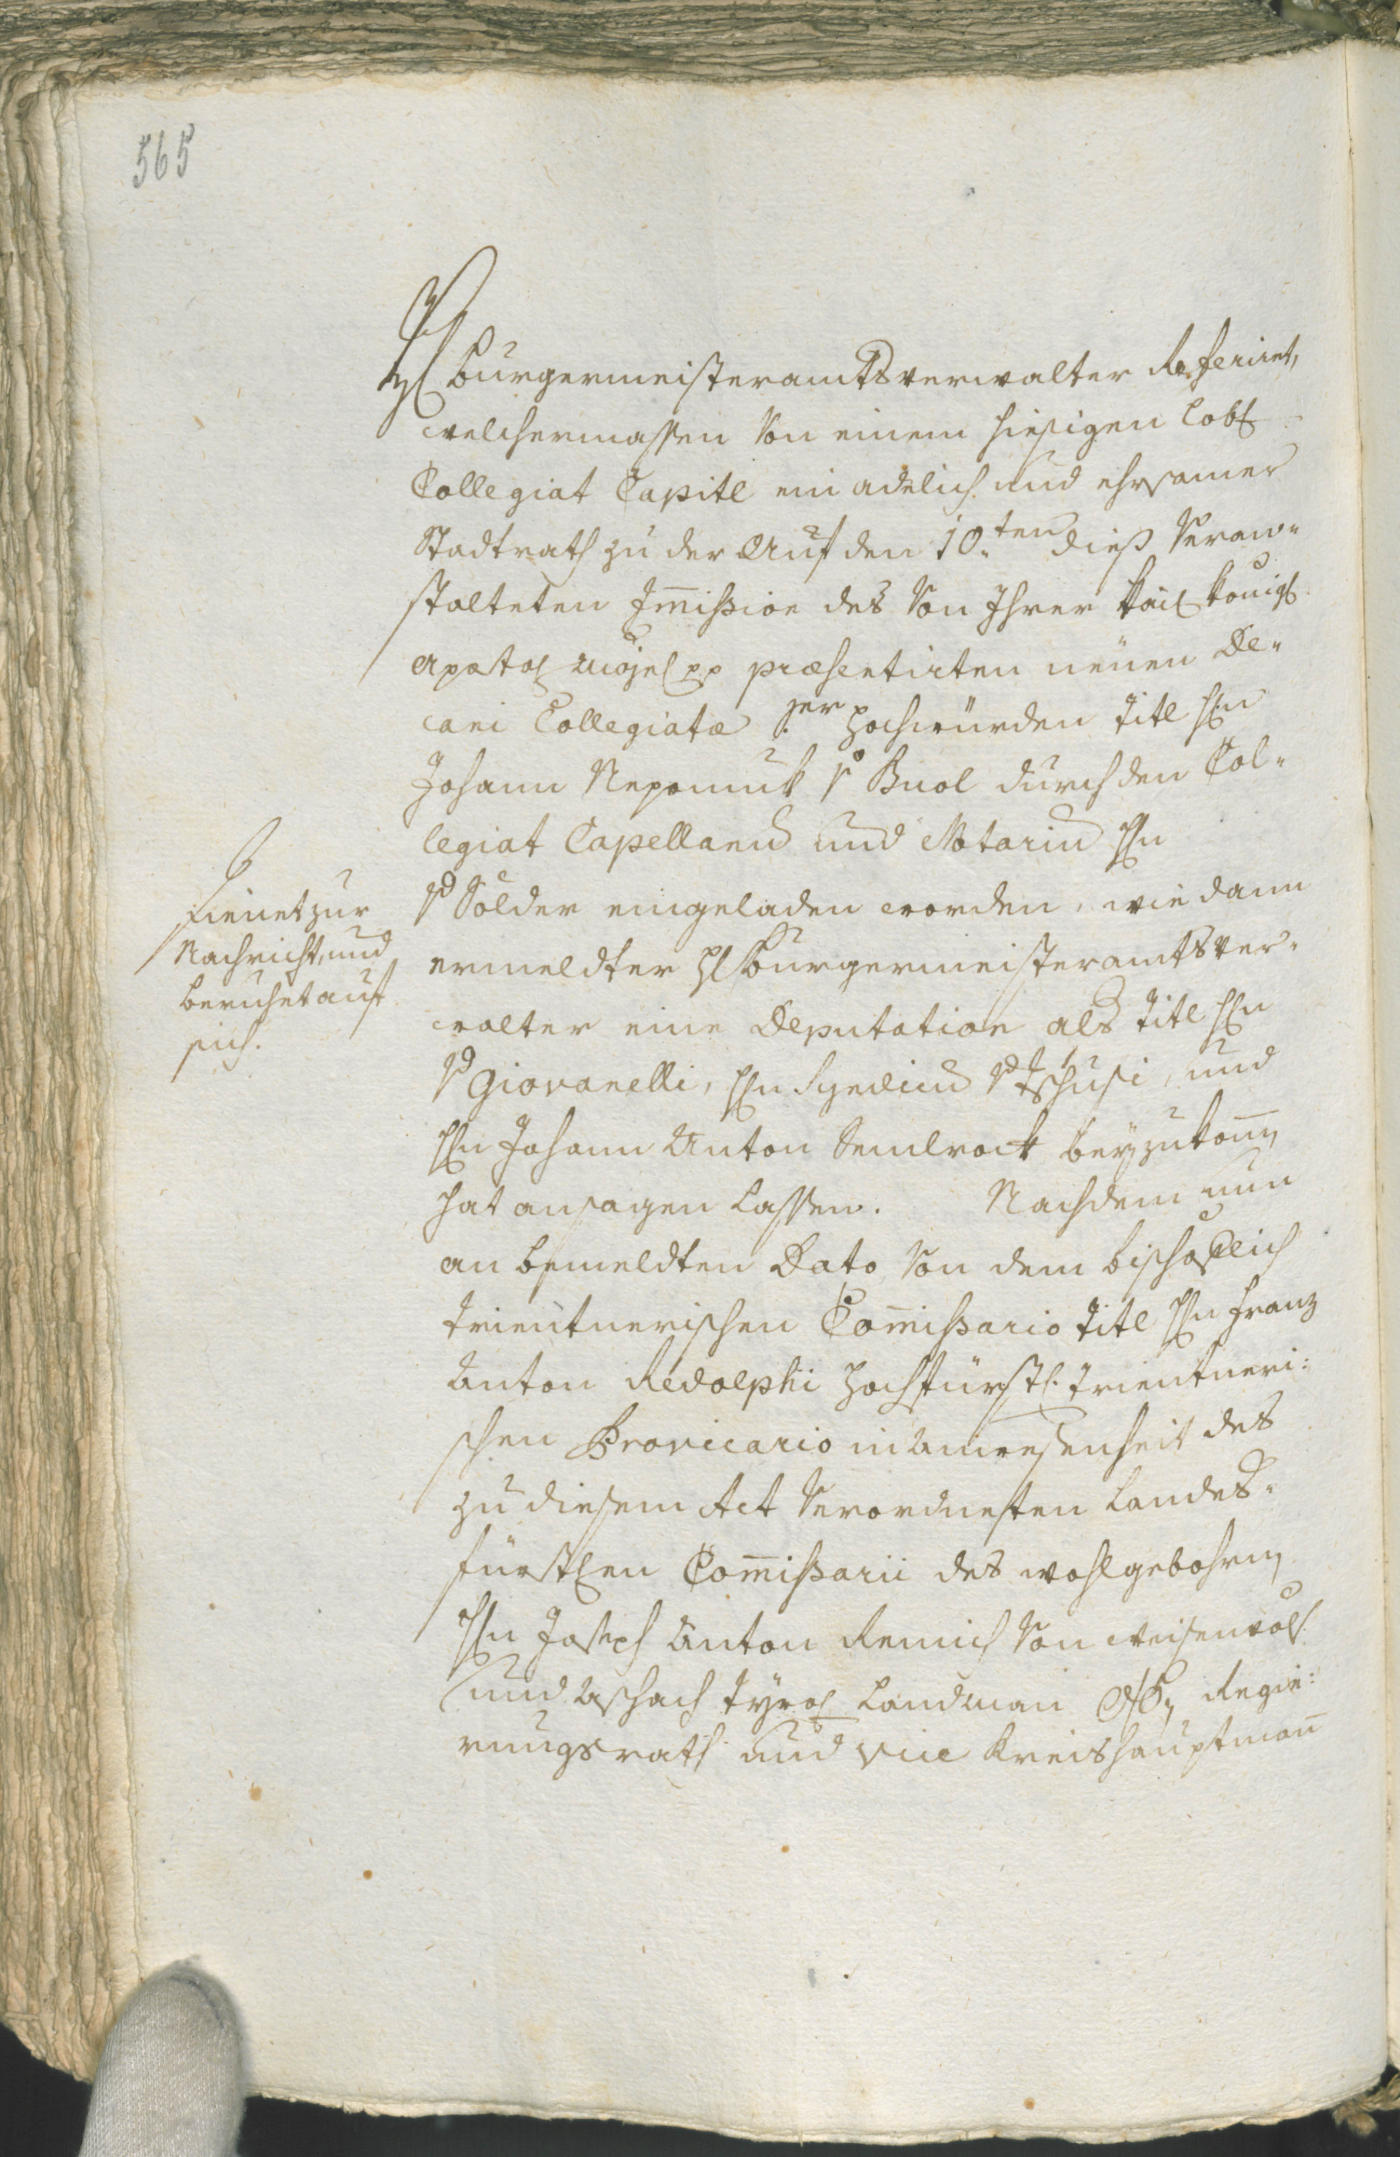 565
H Burgermeisteramtsverwalter Referiret,
welchermassen von einem hiesigen Lobl
Collegiat Capitl ein adelich und ehrsamer
Stadtrath zu der auf den 10.ten dieß veran-
stalteten Im̄ißion des von Ihrer kaÿl königl
Apostol Majest pp præsentirten neuen De-
cani Collegiatæ Sr Hochwürden Titl Hrn
Johann Nepomuk v Buol durch den Col-
legiat Capellanum und Notarium Hrn
v Sölder eingeladen worden, wie dann
ermeldter H Burgermeisteramtsver-
walter eine Deputation als Titl Hrn
v Giovanelli, Hrn Syndicum v Tschusi, und
Hrn Johann Anton Semlrock beyzukom̄en
hat ansagen lassen. Nachdem nun
an bemeldten Dato von dem bischoflich
Trientnerischen Com̄ißario Titl Hrn Franz
Anton Redolphi Hochfürstl. Trientneri:
schen Provicario in Anwesenheit des
zu diesem Act verordneten Landes-
fürstlen Com̄ißarii des wohlgebohrnen
Hrn Joseph Anton Remich von Weisenvols
und Aschach Tyrol Landman Regie:
rungsrath und Vice Kreishauptman̄
Dienet zur
Nachricht, und
beruhet auf
sich.